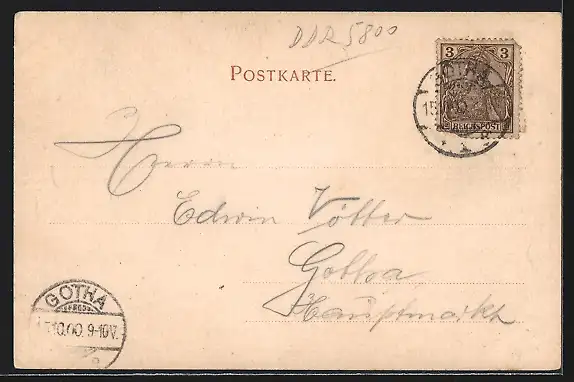 DDR 5800
POSTKARTE.
3 3
REICHSPOST
GOTHA
15
Herrn
Edwin Vötter
Gotha
Hauptmarkt
GOTHA
10.00. 9-10V.